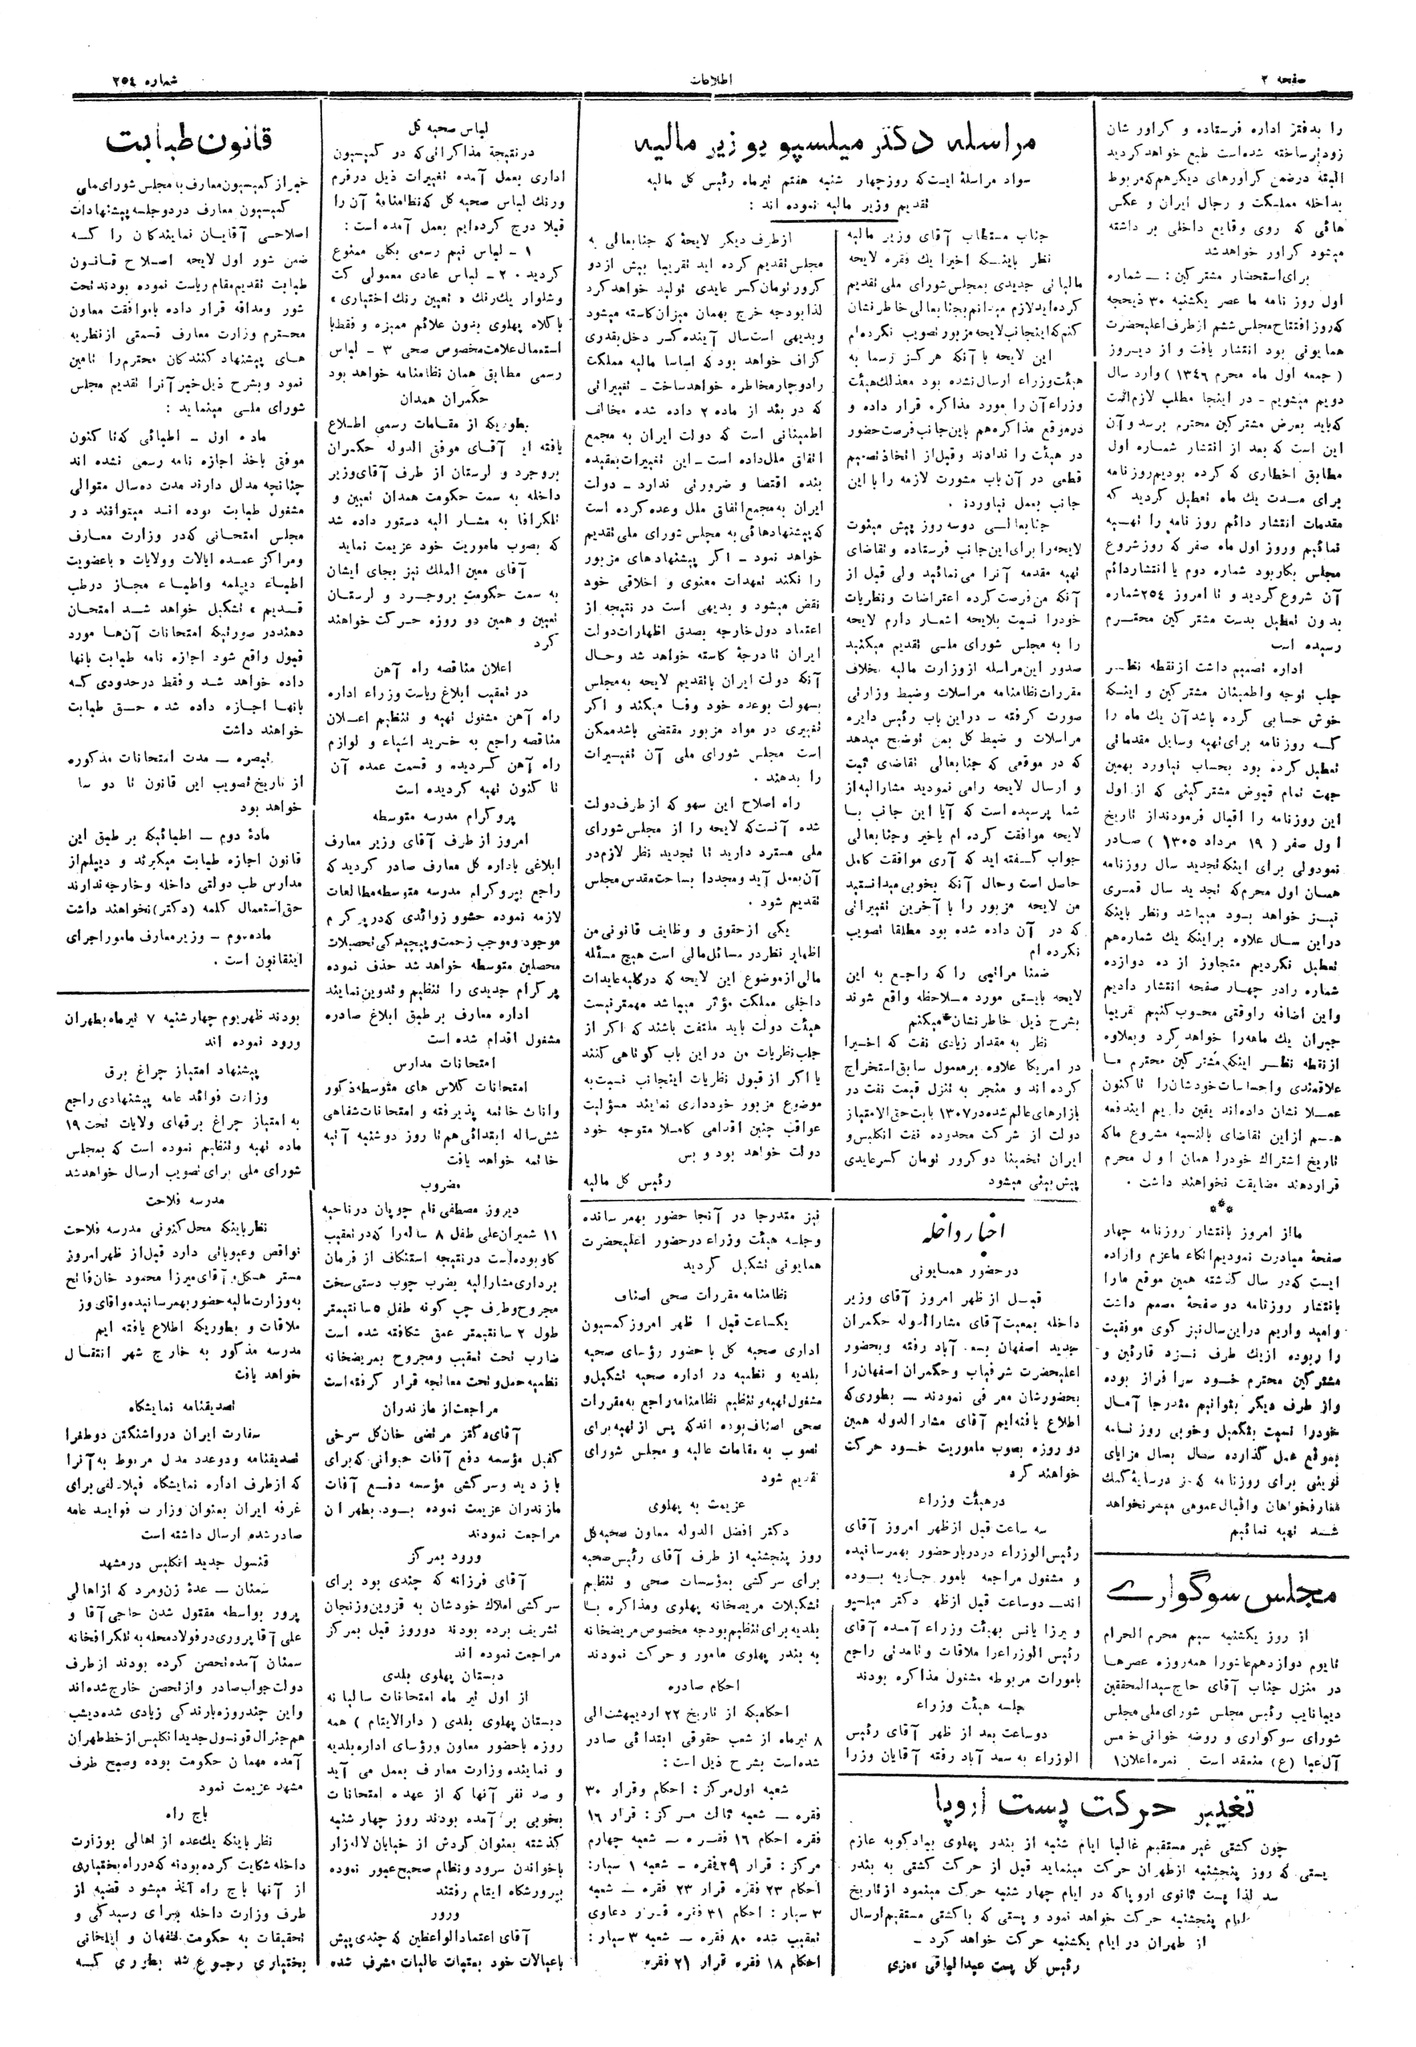 صفحه ۲
اطلاعات
شماره ۲۵۴
را بدفتر اداره فرستاده و کراور شان
زودتر ساخته شده‌است طبع خواهد کردید
البته درضمن کراورهای دیگر هم که مربوط
بداخله مملکت و رجال ایران و عکس
هائی که روی وقایع داخلی بر داشته
میشود کراور خواهد شد
برای استحضار مشترکین : ــ شماره
اول روز نامه ما عصر یکشنبه ۳۰ ذیحجه
که روز افتتاح مجلس ششم از طرف اعلیحضرت
همایونی بود انتشار یافت و از دیروز
( جمعه اول ماه محرم ۱۳۴۶ ) وارد سال
دویم میشویم - در اینجا مطلب لازم است
که باید بعرض مشترکین محترم برسد و آن
این است که بعد از انتشار شماره اول
مطابق اخطاری که کرده بودیم روزنامه
برای مدت یك ماه تعطیل کردید که
مقدمات انتشار دائم روز نامه را تهیه
نمائیم و روز اول ماه صفر که روز شروع
مجلس بکار بود شماره دوم یا انتشار دائم
آن شروع کردید و تا امروز ۲۵۴ شماره
بدون تعطیل بدست مشترکین محترم
رسیده است
اداره تصمیم داشت از نقطه نظر
جلب توجه و اطمینان مشترکین و اینکه
خوش حسابی کرده باشد آن یك ماه را
که روزنامه برای تهیه وسایل مقدماتی
تعطیل کرده بود بحساب نیاورد بهمین
جهت تمام قبوض مشترکینی که از اول
این روزنامه را اقبال فرمودند از تاریخ
اول صفر ( ۱۹ مرداد ۱۳۰۵ ) صادر
نمود ولی برای اینکه تجدید سال روزنامه
همان اول محرم که تجدید سال قمری
نیز خواهد بود میباشد و نظر باینکه
دراین سال علاوه بر اینکه یك شماره هم
تعطیل نکردیم متجاوز از ده دوازده
شماره را در چهار صفحه انتشار دادیم
و این اضافه را وقتی محسوب کنیم تقریبا
جبران یك ماهه را خواهد کرد و بعلاوه
از نقطه نظر اینکه مشترکین محترم ما
علاقمندی و احساسات خودشان را تا کنون
عملا نشان داده‌اند یقین داریم ایندفعه
هم از این تقاضای بالنسبه مشروع ما که
تاریخ اشتراك خود را همان اول محرم
قرار دهند مضایقت نخواهند داشت .
***
ما از امروز بانتشار روزنامه چهار
صفحهٔ مبادرت نمودیم اتکاء ما عزم و اراده
ایست که در سال کذشته همین موقع ما را
بانتشار روزنامه دو صفحهٔ مصمم داشت
و امید واریم در این سال نیز کوی موفقیت
را ربوده از یك طرف نزد قارئین و
مشترکین محترم خود سر افراز بوده
و از طرف دیگر بتوانیم متدرجا آمال
خود را نسبت بتکمیل و خوبی روز نامه
بموقع عمل گذارده سال بسال مزایای
نوینی برای روزنامه که در سایهٔ کمك
معارفخواهان و اقبال عمومی میسر نخواهد
شد تهیه نمائیم
مجلس سوگواری
از روز یکشنبه سیم محرم الحرام
تا یوم دوازدهم عاشورا همه روزه عصرها
در منزل جناب آقای حاج سید المحققین
دیبا نایب رئیس مجلس شورای ملی مجلس
شورای سوکواری و روضه خوانی خمس
آل عبا (ع) منعقد است   نمره اعلان ۱
مراسله دکتر میلسپو بوزیر مالیه
سواد مراسلهٔ ایست که روز چهار شنبه هفتم تیر ماه رئیس کل مالیه
تقدیم وزیر مالیه نموده اند :
جناب مستطاب آقای وزیر مالیه
نظر باینکه اخیرا یك فقره لایحه
مالیاتی جدیدی بمجلس شورای ملی تقدیم
کرده‌اید لازم میدانم بجنابعالی خاطرنشان
کنم که اینجانب لایحه مزبور تصویب نکرده‌ام
این لایحه با آنکه هرگز رسما به
هیئت وزراء ارسال نشده بود معذلك هیئت
وزراء آن را مورد مذاکره قرار داده و
در موقع مذاکره هم باین جانب فرصت حضور
در هیئت را ندادند و قبل از اتخاذ تصمیم
قطعی در آن باب مشورت لازمه را با این
جانب بعمل نیاوردند
جنابعالی دوسه روز پیش مینوت
لایحه را برای این جانب فرستاده و تقاضای
تهیه مقدمه آنرا می نمائید ولی قبل از
آنکه من فرصت کرده اعتراضات و نظریات
خود را نسبت بلایحه اشعار دارم لایحه
را به مجلس شورای ملی تقدیم میکنید
صدور این مراسله از وزارت مالیه بخلاف
مقررات نظامنامه مراسلات و ضبط وزارتی
صورت کرفته - در این باب رئیس دایره
مراسلات و ضبط کل بمن توضیح میدهد
که در موقعی که جنابعالی تقاضای ثبت
و ارسال لایحه رامی نمودید مشارالیه از
شما پرسیده است که آیا این جانب با
لایحه موافقت کرده ام یا خیر و جنابعالی
جواب کفته اید که آری موافقت کامل
حاصل است و حال آنکه بخوبی میدانستید
من لایحه مزبور را با آخرین تغییراتی
که در آن داده شده بود مطلقا تصویب
نکرده ام
ضمنا مراتبی را که راجع به این
لایحه بایستی مورد ملاحظه واقع شوند
بشرح ذیل خاطر نشان میکنم
نظر به مقدار زیادی نفت که اخیرا
در امریکا علاوه بر معمول سابق استخراج
کرده اند و منجر به تنزل قیمت نفت در
بازارهای عالم شده در ۱۳۰۷ بابت حق‌الامتیاز
دولت از شرکت محدوده نفت انکلیس و
ایران تخمینا دو کرور تومان کسر عایدی
پیش بینی میشود
از طرف دیکر لایحهٔ که جنابعالی به
مجلس تقدیم کرده اید تقریبا بیش از دو
کرور تومان کسر عایدی تولید خواهد کرد
لذا بودجه خرج بهمان میزان کاسته میشود
و بدیهی است سال آینده کسر دخل بقدری
کزاف خواهد بود که اساسا مالیه مملکت
را دوچار مخاطره خواهد ساخت - تغییراتی
که در بند از ماده ۲ داده شده مخالف
اطمینانی است که دولت ایران به مجمع
اتفاق ملل داده است - این تغییرات بعقیده
بنده اقتضا و ضرورتی ندارد - دولت
ایران به مجمع اتفاق ملل وعده کرده است
که پیشنهادهائی به مجلس شورای ملی تقدیم
خواهد نمود - اکر پیشنهاد های مزبور
را نکند تعهدات معنوی و اخلاقی خود
نقض میشود و بدیهی است در نتیجه از
اعتماد دول خارجه بصدق اظهارات دولت
ایران تا درجهٔ کاسته خواهد شد و حال
آنکه دولت ایران با تقدیم لایحه به مجلس
بسهولت بوعده خود وفا میکند و اکر
تغییری در مواد مزبور مقتضی باشد ممکن
است مجلس شورای ملی آن تغییرات
را بدهند .
راه اصلاح این سهو که از طرف دولت
شده آنست که لایحه را از مجلس شورای
ملی مسترد دارید تا تجدید نظر لازم در
آن بعمل آید و مجددا بساحت مقدس مجلس
تقدیم شود .
یکی از حقوق و وظایف قانونی من
اظهار نظر در مسائل مالی است هیچ مسئله
مالی از موضوع این لایحه که در کلیه عایدات
داخلی مملکت مؤثر میباشد مهمتر نیست
هیئت دولت باید ملتفت باشند که اکر از
جلب نظریات من در این باب کوتاهی کنند
یا اکر از قبول نظریات اینجانب نسبت به
موضوع مزبور خودداری نمایند مسؤلیت
عواقب چنین اقدامی کاملا متوجه خود
دولت خواهد بود و بس
رئیس کل مالیه
اخبار داخله
در حضور همایونی
قبل از ظهر امروز آقای وزیر
داخله بمعیت آقای مشارالدوله حکمران
جدید اصفهان بسعد آباد رفته و بحضور
اعلیحضرت شرفیاب و حکمران اصفهان را
بحضورشان معرفی نمودند - بطوری که
اطلاع یافته‌ایم آقای مشار الدوله همین
دو روزه بصوب ماموریت خود حرکت
خواهند کرد
در هیئت وزراء
سه ساعت قبل از ظهر امروز آقای
رئیس الوزراء در دربار حضور بهمرسانیده
و مشغول مراجعه بامور جاریه بوده
اند - دو ساعت قبل از ظهر دکتر میلسپو
و یرزا یانس بهیئت وزراء آمده آقای
رئیس الوزراء را ملاقات و تامدتی راجع
بامورات مربوطه مشغول مذاکره بودند
جلسه هیئت وزراء
دو ساعت بعد از ظهر آقای رئیس
الوزراء به سعد آباد رفته آقایان وزرا
نیز متدرجا در آنجا حضور بهمرسانده
و جلسه هیئت وزراء در حضور اعلیحضرت
همایونی تشکیل کردید
نظامنامه مقررات صحی اصناف
یکساعت قبل از ظهر امروز کمسیون
اداری صحیه کل با حضور رؤسای صحیه
بلدیه و نظمیه در اداره صحیه تشکیل و
مشغول تهیه و تنظیم نظامنامه راجع به مقررات
صحی اصناف بوده اند که پس از تهیه برای
تصویب به مقامات عالیه و مجلس شورای
تقدیم شود
عزیمت به پهلوی
دکتر افضل الدوله معاون صحیه کل
روز پنجشنبه از طرف آقای رئیس صحیه
برای سرکشی بمؤسسات صحی و تنظیم
تشکیلات مریضخانه پهلوی و مذاکره با
بلدیه برای تنظیم بودجه مخصوص مریضخانه
به بندر پهلوی مامور و حرکت نمودند
احکام صادره
احکامیکه از تاریخ ۲۲ اردیبهشت الی
۸ تیر ماه از شعب حقوقی ابتدائی صادر
شده‌است بشرح ذیل است :
شعبه اول مرکز : احکام و قرار ۳۰
فقره - شعبه ثالث مرکز : قرار ۱۶
فقره احکام ۱۶ فقره - شعبه چهارم
مرکز : قرار ۴۲۹ فقره - شعبه ۱ سیار :
احکام ۲۳ فقره قرار ۲۳ فقره - شعبه
۳ سیار : احکام ۳۱ فقره قرار دعاوی
تعقیب شده ۸۰ فقره - شعبه ۳ سیار :
احکام ۱۸ فقره قرار ۲۱ فقره
تغییر حرکت پست اروپا
چون کشتی غیر مستقیم غالبا ایام شنبه از بندر پهلوی ببادکوبه عازم
پستی که روز پنجشنبه از طهران حرکت مینماید قبل از حرکت کشتی به بندر
سد لذا پست ثانوی اروپا که در ایام چهار شنبه حرکت مینمود از تاریخ
ایام پنجشنبه حرکت خواهد نمود و پستی که با کشتی مستقیم ارسال
از طهران در ایام یکشنبه حرکت خواهد کرد -
رئیس کل پست عبدالباقی
لباس صحیه کل
در نتیجهٔ مذاکراتی که در کمیسیون
اداری بعمل آمده تغییرات ذیل در فرم
و رنك لباس صحیه کل که نظامنامهٔ آن را
قبلا درج کرده‌ایم بعمل آمده است :
۱ - لباس نیم رسمی بکلی ممنوع
کردید ۲۰ - لباس عادی معمولی کت
و شلوار یك رنك « تعیین رنك اختیاری »
با کلاه پهلوی بدون علائم ممیزه و فقط با
استعمال علامت مخصوص صحی ۳ - لباس
رسمی مطابق همان نظامنامه خواهد بود
حکمران همدان
بطوریکه از مقامات رسمی اطلاع
یافته ایم آقای موفق الدوله حکمران
بروجرد و لرستان از طرف آقای وزیر
داخله به سمت حکومت همدان تعیین و
تلکرافا به مشار الیه دستور داده شد
که بصوب ماموریت خود عزیمت نماید
آقای معین الملك نیز بجای ایشان
به سمت حکومت بروجرد و لرستان
تعیین و همین دو روزه حرکت خواهند
کرد
اعلان مناقصه راه آهن
در تعقیب ابلاغ ریاست وزراء اداره
راه آهن مشغول تهیه و تنظیم اعلان
مناقصه راجع به خرید اشیاء و لوازم
راه آهن کردیده و قسمت عمده آن
تا کنون تهیه کردیده است
پروگرام مدرسه متوسطه
امروز از طرف آقای وزیر معارف
ابلاغی باداره کل معارف صادر کردید که
راجع ببروکرام مدرسه متوسطه مطالعات
لازمه نموده حشو و زوائدی که در پرکرم
موجود و موجب زحمت و پیچیدگی تحصیلات
محصلین متوسطه خواهد شد حذف نموده
پرکرام جدیدی را تنظیم و تدوین نمایند
اداره معارف بر طبق ابلاغ صادره
مشغول اقدام شده است
امتحانات مدارس
امتحانات کلاس های متوسطه ذکور
و اناث خاتمه پذیرفته و امتحانات شفاهی
شش ساله ابتدائی هم تا روز دوشنبه آتیه
خاتمه خواهد یافت
مضروب
دیروز مصطفی نام چوپان در ناحیه
۱۱ شمیران علی طفل ۸ ساله را که در تعقیب
کاو بوده‌است در نتیجه استنکاف از فرمان
برداری مشارالیه بضرب چوب دستی سخت
مجروح و طرف چپ کونه طفل ۵ سانتیمتر
طول ۲ سانتیمتر عمق شکافته شده است
ضارب تحت تعقیب و مجروح بمریضخانه
نظمیه حمل و تحت معالجه قرار کرفته‌است
مراجعت از مازندران
آقای دکتر مرتضی خان کل سرخی
کفیل مؤسسه دفع آفات حیوانی که برای
بازدید و سرکشی مؤسسه دفع آفات
مازندران عزیمت نموده بود بطهران
مراجعت نمودند
ورود بمرکز
آقای فرزانه که چندی بود برای
سرکشی املاك خودشان به قزوین و زنجان
تشریف برده بودند دو روز قبل بمرکز
مراجعت نموده اند
دبستان پهلوی بلدی
از اول تیر ماه امتحانات سالیانه
دبستان پهلوی بلدی ( دارالایتام ) همه
روزه با حضور معاون و رؤسای اداره بلدیه
و نماینده وزارت معارف بعمل می آید
و صد نفر آنها که از عهده امتحانات
بخوبی بر آمده بودند روز چهار شنبه
کذشته بعنوان کردش از خیابان لاله‌زار
با خواندن سرود و نظام صحیح عبور نموده
بپرورشکاه ایتام رفتند
ورود
آقای اعتماد الواعظین که چندی پیش
با عیالات خود بعتبات عالیات مشرف شده
قانون طبابت
خبر از کمیسیون معارف با مجلس شورای ملی
کمیسیون معارف در دو جلسه پیشنهادات
اصلاحی آقایان نمایندکان را که
ضمن شور اول لایحه اصلاح قانون
طبابت تقدیم مقام ریاست نموده بودند تحت
شور و مداقه قرار داده با موافقت معاون
محترم وزارت معارف قسمتی از نظریه
های پیشنهاد کنندکان محترم را تامین
نمود و بشرح ذیل خبر آنرا تقدیم مجلس
شورای ملی مینماید :
ماده اول - اطبائی که تا کنون
موفق باخذ اجازه نامه رسمی نشده اند
چنانچه مدلل دارند مدت ده سال متوالی
مشغول طبابت بوده اند میتوانند در
مجلس امتحانی که در وزارت معارف
و مراکز عمده ایالات و ولایات « با عضویت
اطباء دیپلمه و اطباء مجاز در طب
قدیم » تشکیل خواهد شد امتحان
دهند در صورتیکه امتحانات آن‌ها مورد
قبول واقع شود اجازه نامه طبابت بآنها
داده خواهد شد و فقط در حدودی که
بآنها اجازه داده شده حق طبابت
خواهند داشت
تبصره - مدت امتحانات مذکوره
از تاریخ تصویب این قانون تا دو سال
خواهد بود
مادهٔ دوم - اطبائیکه بر طبق این
قانون اجازه طبابت میکیرند و دیپلم از
مدارس طب دولتی داخله و خارجه ندارند
حق استعمال کلمه (دکتر) نخواهند داشت
ماده سوم - وزیر معارف مامور اجرای
اینقانون است .
بودند ظهر یوم چهارشنبه ۷ تیر ماه بطهران
ورود نموده اند
پیشنهاد امتیاز چراغ برق
وزارت فوائد عامه پیشنهادی راجع
به امتیاز چراغ برقهای ولایات تحت ۱۹
ماده تهیه و تنظیم نموده است که بمجلس
شورای ملی برای تصویب ارسال خواهد شد
مدرسه فلاحت
نظر باینکه محل کنونی مدرسه فلاحت
نواقص و عیوباتی دارد قبل از ظهر امروز
مستر هسکل و آقای میرزا محمود خان فاتح
به وزارت مالیه حضور بهمرسانیده و آقای وز
ملاقات و بطوریکه اطلاع یافته ایم
مدرسه مذکور به خارج شهر انتقال
خواهد یافت
تصدیقنامه نمایشکاه
سفارت ایران در واشنکتن دو طغرا
تصدیقنامه و دو عدد مدل مربوط به آنرا
که از طرف اداره نمایشکاه فیلادلفی برای
غرفه ایران بعنوان وزارت فواید عامه
صادر شده ارسال داشته است
قنسول جدید انکلیس در مشهد
سمنان - عدهٔ زن و مرد که از اهالی
پرور بواسطه مقتول شدن حاجی آقا و
علی آقا پروری در فولاد محله به تلکرافخانه
سمنان آمده تحصن کرده بودند از طرف
دولت جواب صادر و از تحصن خارج شده‌اند
و این چند روزه بارندکی زیادی شده دیشب
هم جنرال قونسول جدید انکلیس از خط طهران
آمده مهمان حکومت بوده و صبح طرف
مشهد عزیمت نمود
باج راه
نظر باینکه یك عده از اهالی بوزارت
داخله شکایت کرده بودند که در راه بختیاری
از آنها باج راه اخذ میشود قضیه از
طرف وزارت داخله برای رسیدکی و
تحقیقات به حکومت اصفهان و ایلخانی
بختیاری رجوع شد بطوری که